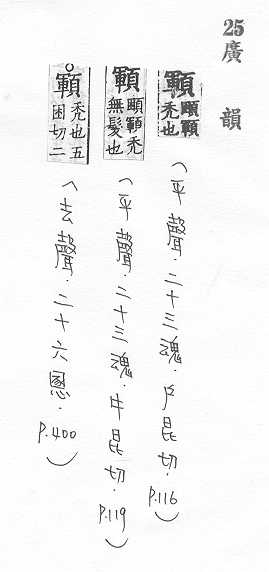 25
廣韻
顐 顐禿也 (平聲.二十三魂.戶昆切.P.116)
顐 顐禿無髮也 (平聲.二十三魂.牛昆切.P.119)
○顐 禿也五困切二 (去聲.二十六慁.P.400)